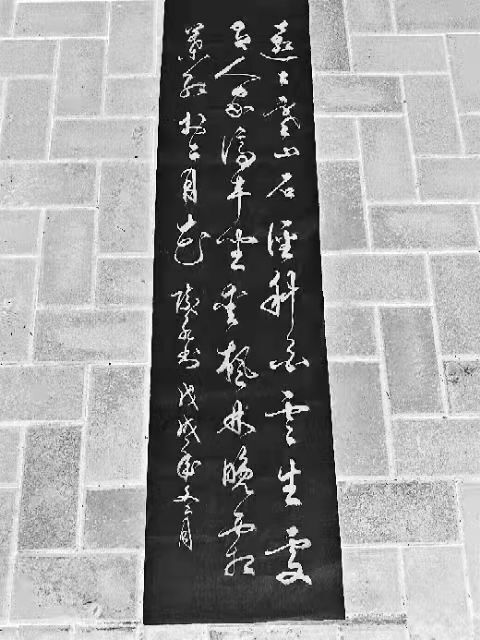 遠上寒山石徑斜白雲生處
有人家停車坐愛楓林晚霜
葉紅於二月花 戊戌年